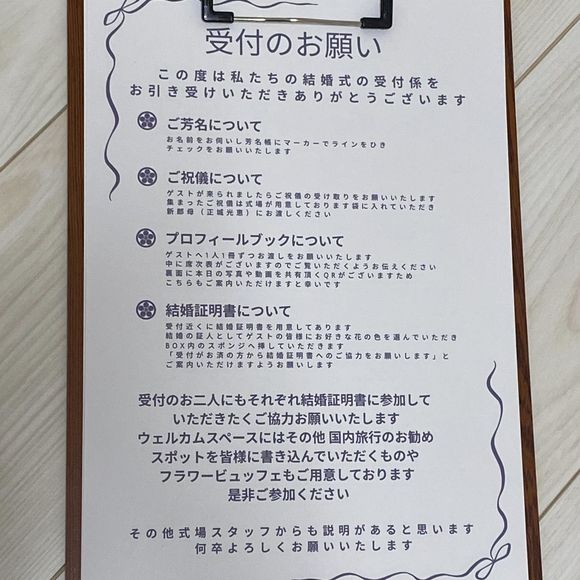 受付のお願い
この度は私たちの結婚式の受付係を
お引き受けいただきありがとうございます
ご芳名について
お名前をお伺いし芳名帳にマーカーでラインをひき
チェックをお願いいたします
ご祝儀について
ゲストが来られましたらご祝儀の受け取りをお願いいたします
集まったご祝儀は式場が用意しております袋に入れていただき
新郎母（正城光恵）にお渡しください
プロフィールブックについて
ゲストへ1人1冊ずつお渡しをお願いいたします
中に席次表がございますのでご覧いただくようお伝えください
裏面に本日の写真や動画を共有頂くQRがございますため
こちらもご案内いただけますと幸いです
結婚証明書について
受付近くに結婚証明書を用意してあります
結婚の証人としてゲストの皆様にお好きな花の色を選んでいただき
BOX内のスポンジへ挿していただきます
「受付がお済の方から結婚証明書へのご協力をお願いします」と
ご案内いただけますようお願いします
受付のお二人にもそれぞれ結婚証明書に参加して
いただきたくご協力お願いいたします
ウェルカムスペースにはその他 国内旅行のお勧め
スポットを皆様に書き込んでいただくものや
フラワービュッフェもご用意しております
是非ご参加ください
その他式場スタッフからも説明があると思います
何卒よろしくお願いいたします